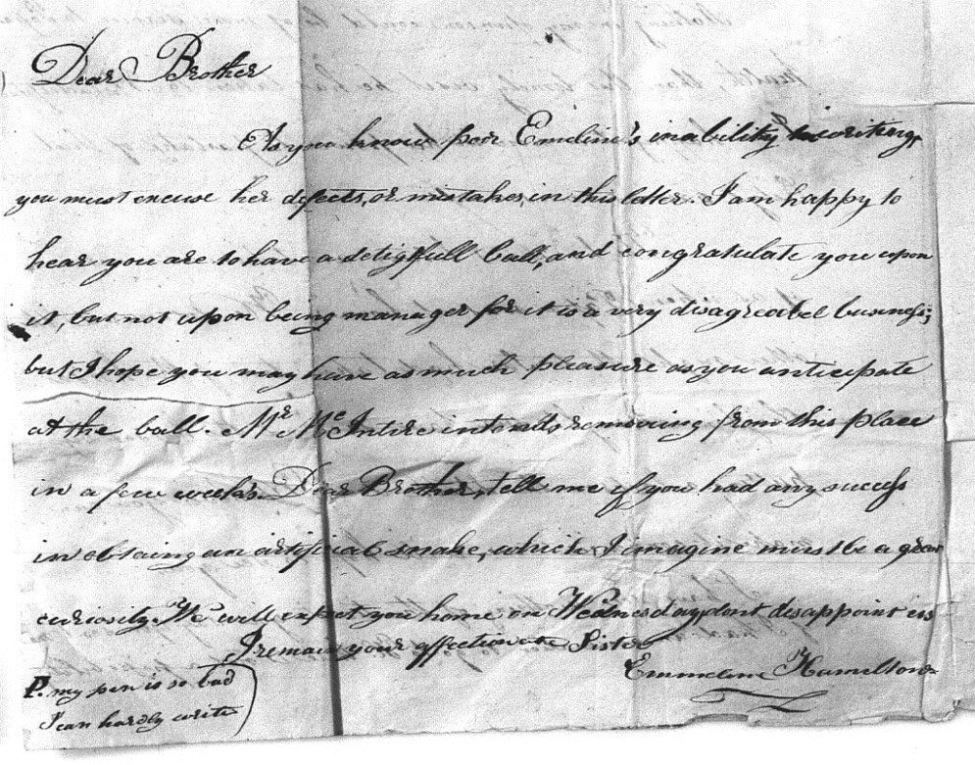 Dear Brother
As you know poor Emeline's inability in writing,
you must excuse her defects, or mistakes, in this letter. I am happy to
hear you are to have a deligfull ball, and congratulate you upon
it, but not upon being manager for it is a very disagreabel business;
but I hope you may have as much pleasure as you anticipate
at the ball. Mr McIntire intends removing from this place
in a few weeks. Dear Brother, tell me if you had any success
in obtaing an artificial snake, which I imagine must be a great
curiosity. We will expect you home on Wednesday dont disappoint us
I remain your affectionate Sister
Emmeline Hamilton
P. my pen is so bad
I can hardly write